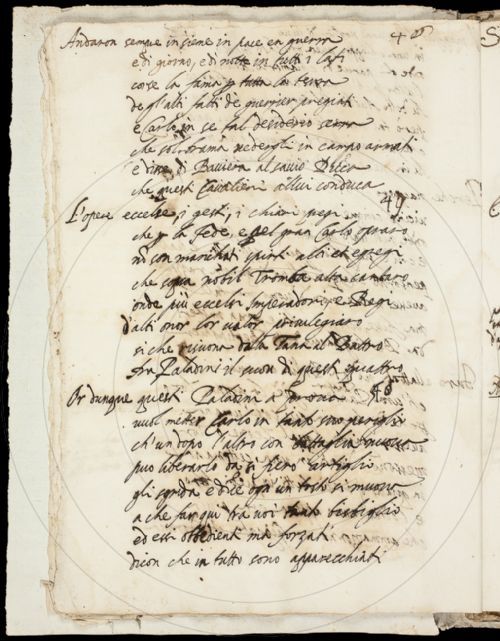 48
Andaron sempre insieme in pace en guerra
e di giorno, e di notte in tutti i lati
corse la fama p tutta la terra
degl'alti fatti de guerrier pregiati
e Carlo in se tal desiderio serra
che sol brama vedergli in campo armati
e disse di Baviera al savio Ducca
che questi Cavalieri a llui conduca
49
L'opere eccelse, i gesti, i chiari pregi
che p la fede, e pel gran Carlo opraro
nō con marchati spirti alti et egregi
che sopra nobil Tromba alta cantaro
onde più eccelsi Imperadori, e Regi
d'alti onor lor valor privilegiaro
si che risuona dalla Tana al Battro
fra Paladini il suon di questi quattro
Or dunque questi Paladini a prova
vuol metter Carlo in tanto periglio
ch'un dopo l'altro con battaglia nuova
può liberarlo da si fiero artiglio
gli sgrida e dice ogn'un tosto si muova
a che far quì trà voi tanto bisbiglio
ed essi obbedienti mà forzati
dicon che in tutto sono apparecchiati